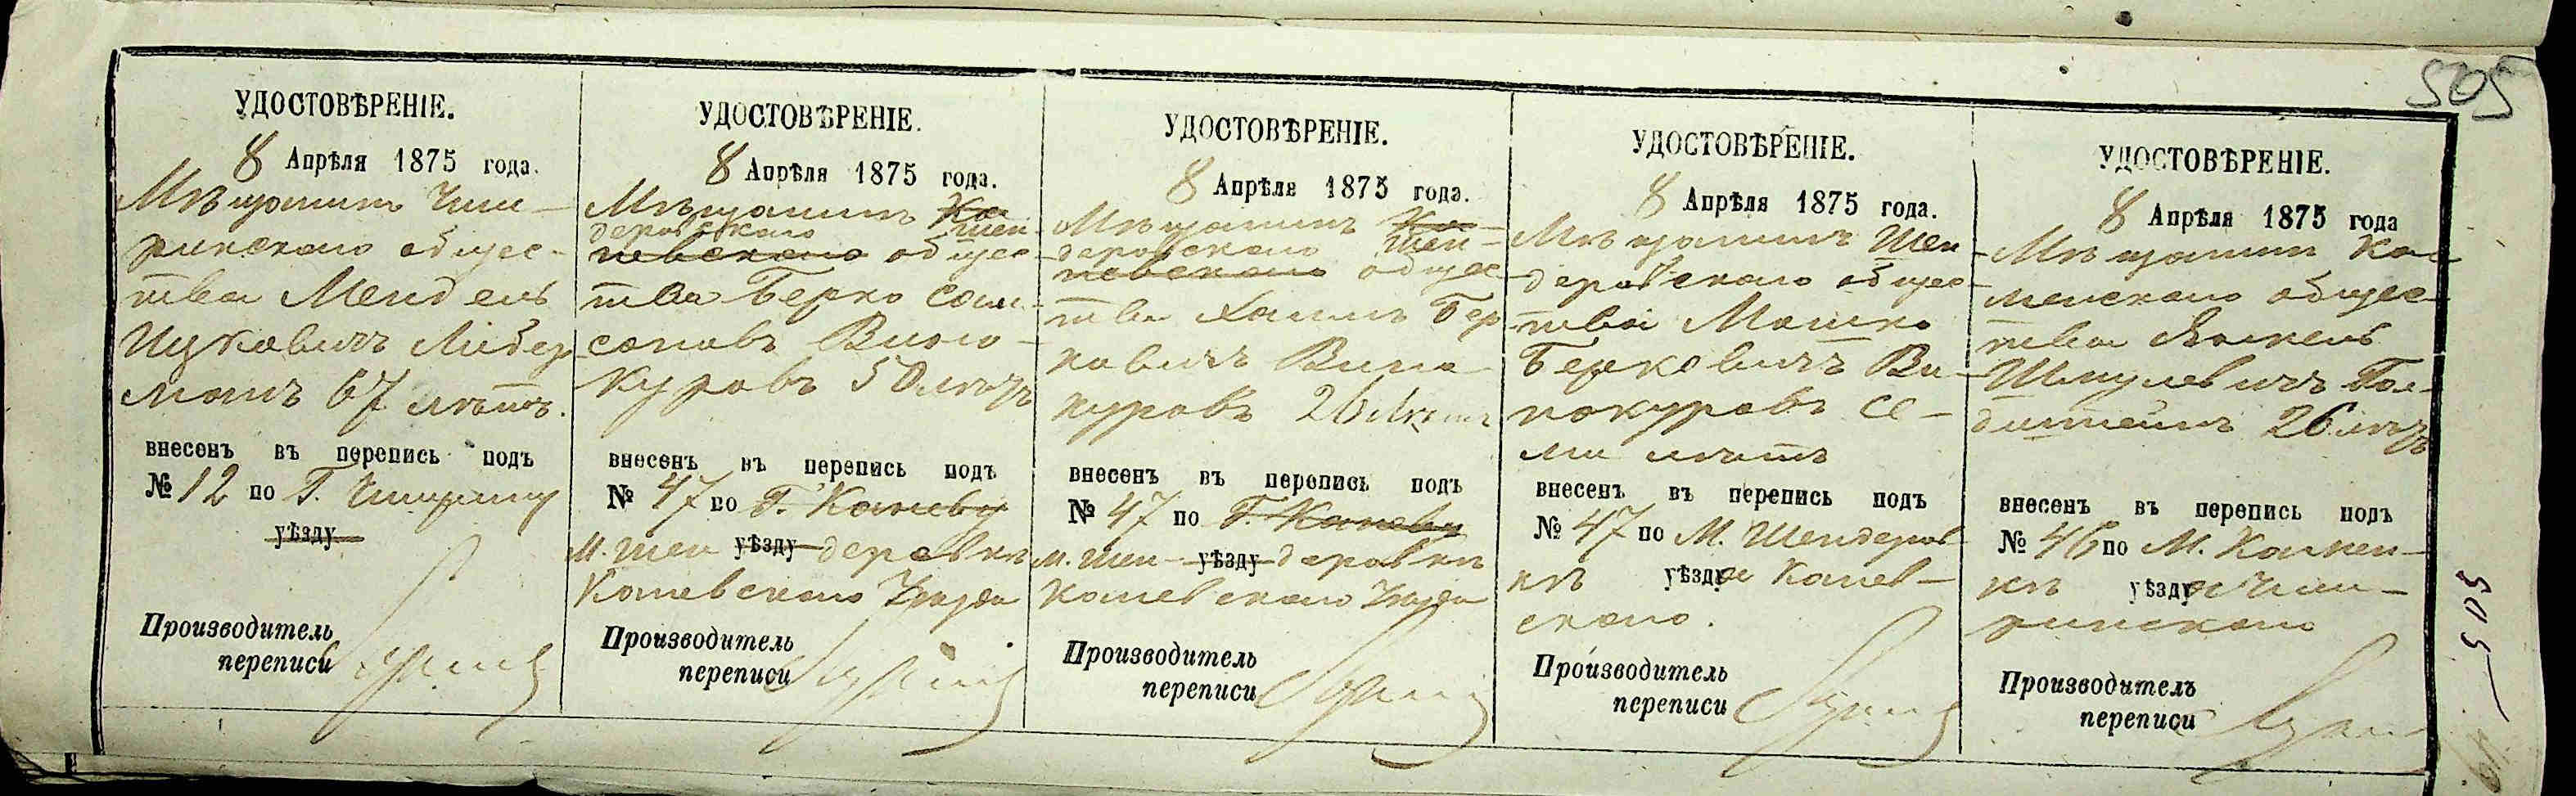 505
УДОСТОВѢРЕНІЕ.
8 Апрѣля 1875 года.
Мѣщанинъ Чиги-
ринскаго общес-
тва Мендель
Ицковичъ Либер
манъ 67 лѣтъ.
внесенъ въ перепись подъ
№ 12 по Г. Чигирину
уѣзду
Производитель
переписи
УДОСТОВѢРЕНІЕ.
8 Апрѣля 1875 года.
Мѣщанинъ Ка
деровскаго Шен-
невскаго общес
тва Берко Сам-
соновъ Вино-
куровъ 50 лѣтъ
внесенъ въ перепись подъ
№ 47 по Г. Каневу
М. Шен уѣзду деровкѣ
Каневскаго Уѣзда
Производитель
переписи
УДОСТОВѢРЕНІЕ.
8 Апрѣля 1875 года.
Мѣщанинъ Ка
деровскаго Шен-
невскаго общес
тва Хаимъ Бер
ковичъ Вино
куровъ 26 лѣтъ
внесенъ въ перепись подъ
№ 47 по Г. Каневу
М. Шен- уѣзду деровкѣ
Каневскаго Уѣзда
Производитель
переписи
УДОСТОВѢРЕНІЕ.
8 Апрѣля 1875 года.
Мѣщанинъ Шен
деровскаго общес
тва Мошко
Берковичъ Ви-
нокуровъ се-
ми лѣтъ
внесенъ въ перепись подъ
№ 47 по М. Шендеров
кѣ уѣзда Канев-
скаго.
Производитель
переписи
УДОСТОВѢРЕНІЕ.
8 Апрѣля 1875 года
Мѣщанинъ Ка
менскаго общес
тва Янкель
Шмулевичъ Гол-
дштейнъ 26 лѣтъ
внесенъ въ перепись подъ
№ 46 по М. Камен-
кѣ уѣзда Чиги-
ринскаго
Производитель
переписи
505